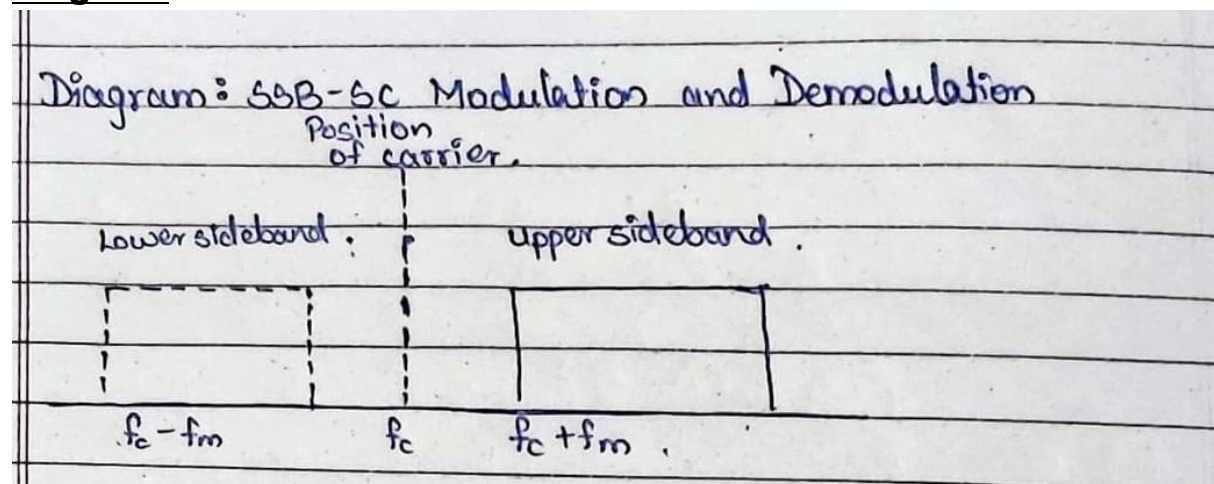 Diagram: SSB-SC Modulation and Demodulation
Position
of carrier.
Lower sideband. upper sideband.
fc - fm fc fc + fm.